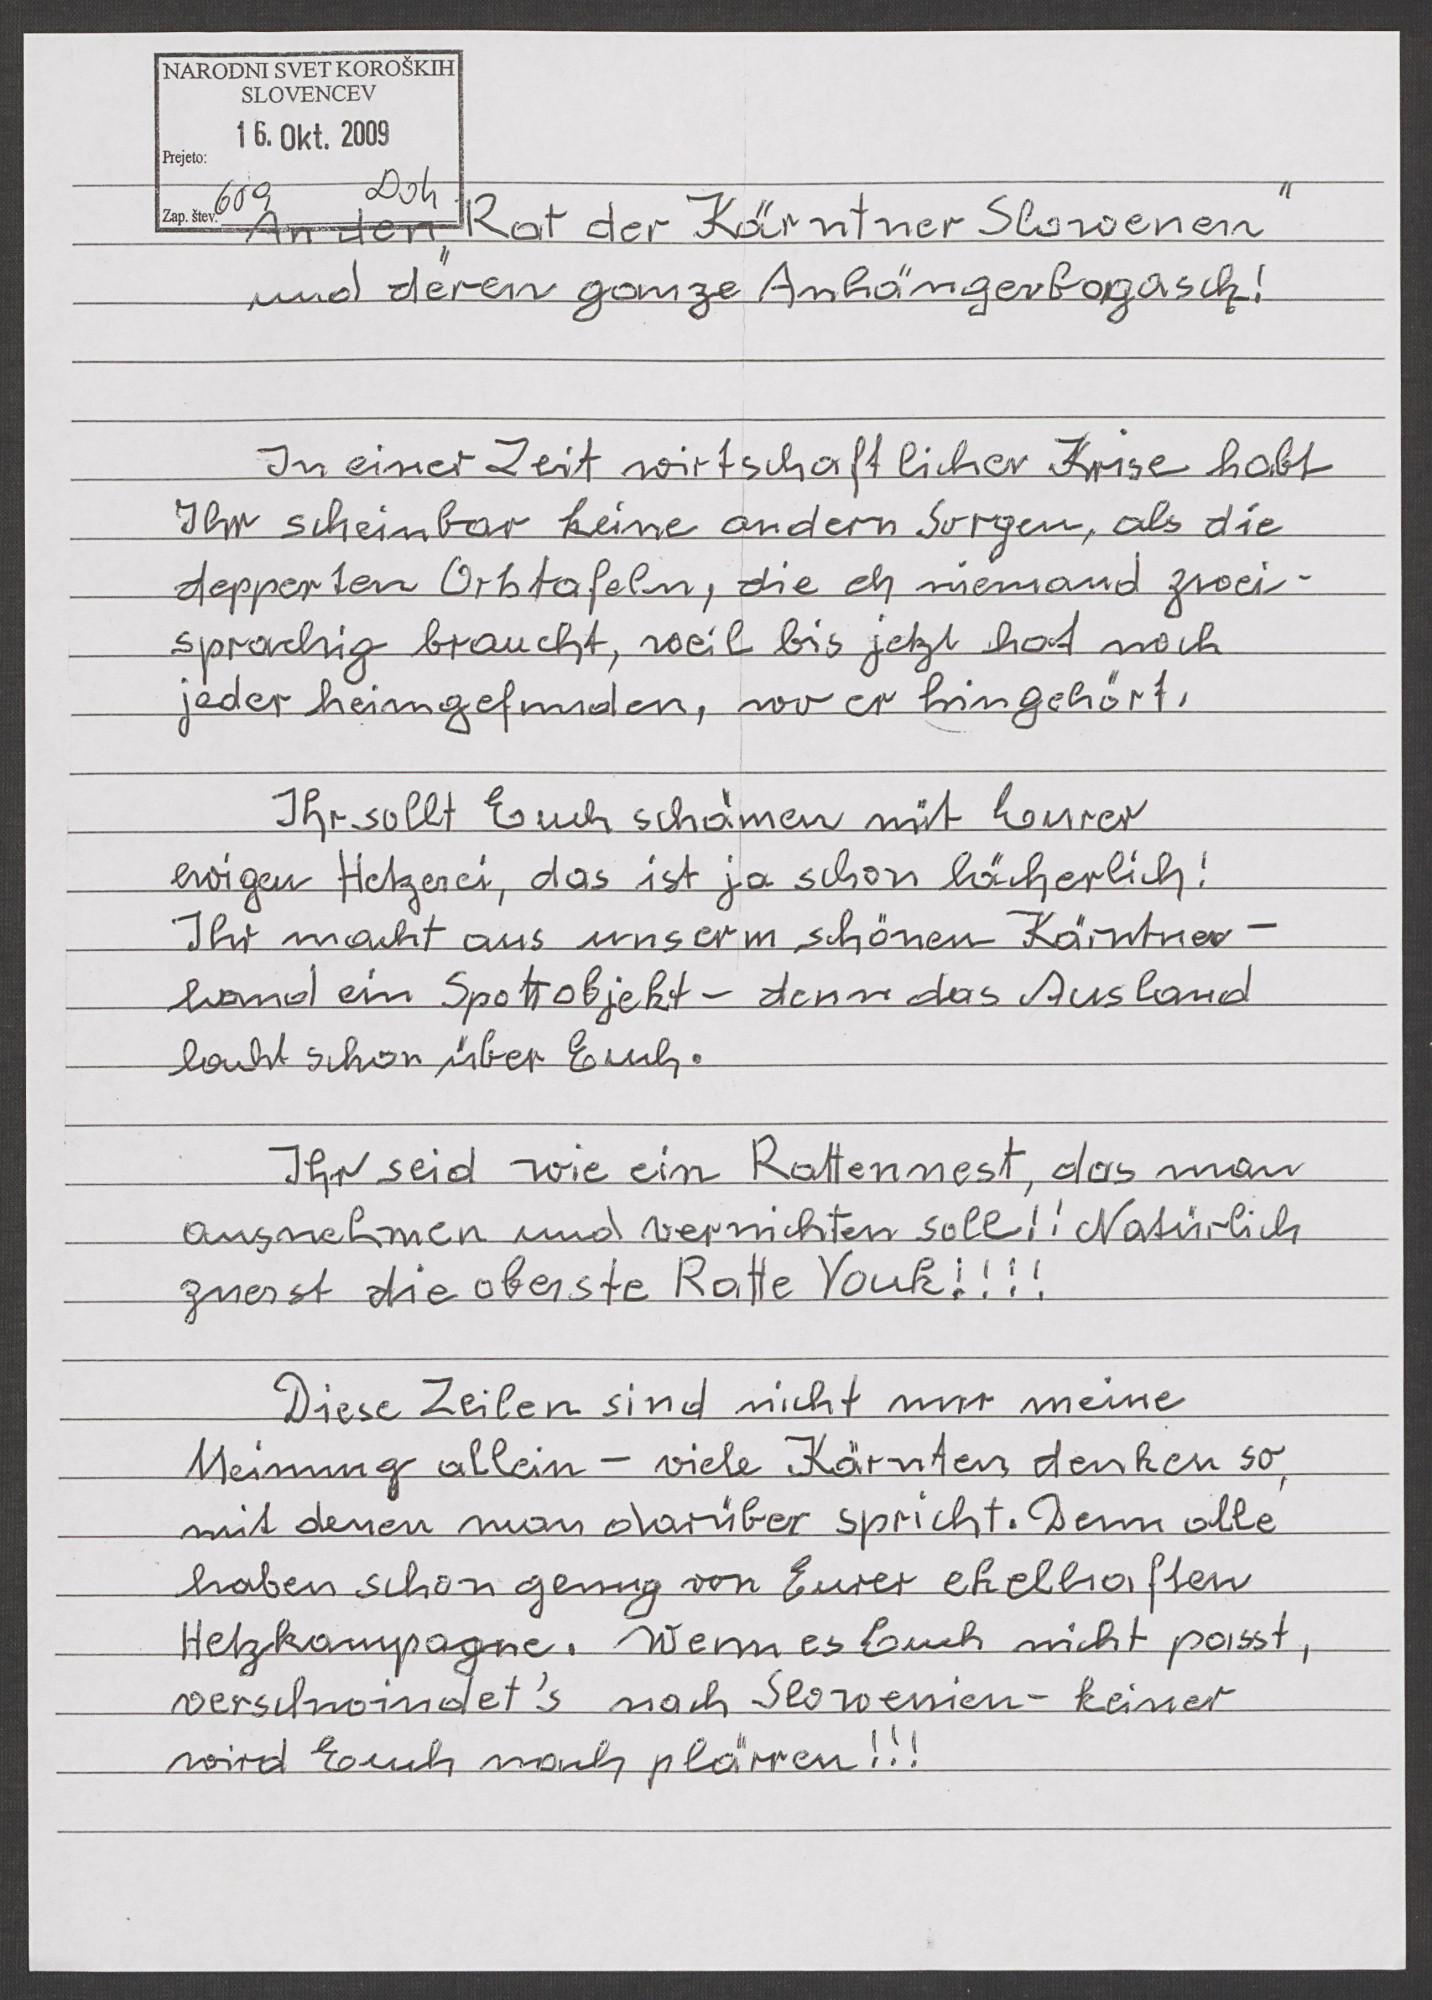 NARODNI SVET KOROŠKIH
SLOVENCEV
16. Okt. 2009
Prejeto:
Zap. štev. 609 Doh
An den „Rat der Kärntner Slowenen“
und deren ganze Anhängerbagasch!
In einer Zeit wirtschaftlicher Krise habt
Ihr scheinbar keine andern Sorgen, als die
depperten Ortstafeln, die eh niemand zwei-
sprachig braucht, weil bis jetzt hat noch
jeder heimgefunden, wo er hingehört.
Ihr sollt Euch schämen mit Eurer
ewigen Hetzerei, das ist ja schon lächerlich!
Ihr macht aus unserm schönen Kärntner-
land ein Spottobjekt – denn das Ausland
lacht schon über Euch.
Ihr seid wie ein Rattennest, das man
ausnehmen und vernichten soll!! Natürlich
zuerst die oberste Ratte Vouk!!!!
Diese Zeilen sind nicht nur meine
Meinung allein – viele Kärntner denken so,
mit denen man darüber spricht. Denn alle
haben schon genug von Eurer ekelhaften
Hetzkampagne. Wenn es Euch nicht passt,
verschwindet's nach Slowenien – keiner
wird Euch nach plärren!!!